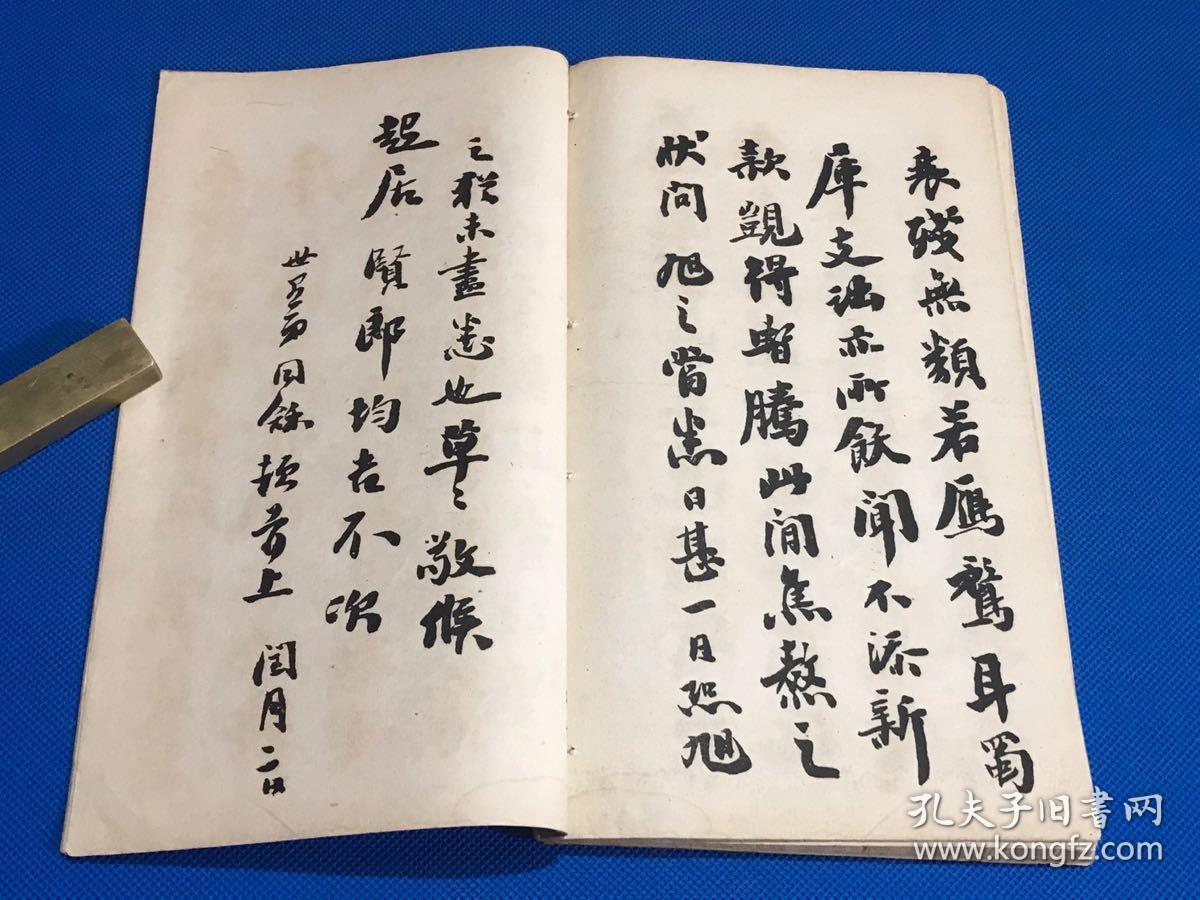 衰殘無類若鴈鶩耳蜀
庫支訖亦所飫聞不添新
款覬得暫騰此間焦熬之
狀問旭之當悉日甚一日熙旭
之猶未盡悉也草〻敬候
起居賢郎均吉不次
世 弟同龢頓首上 閏月二日
孔夫子旧書网
www.kongfz.com